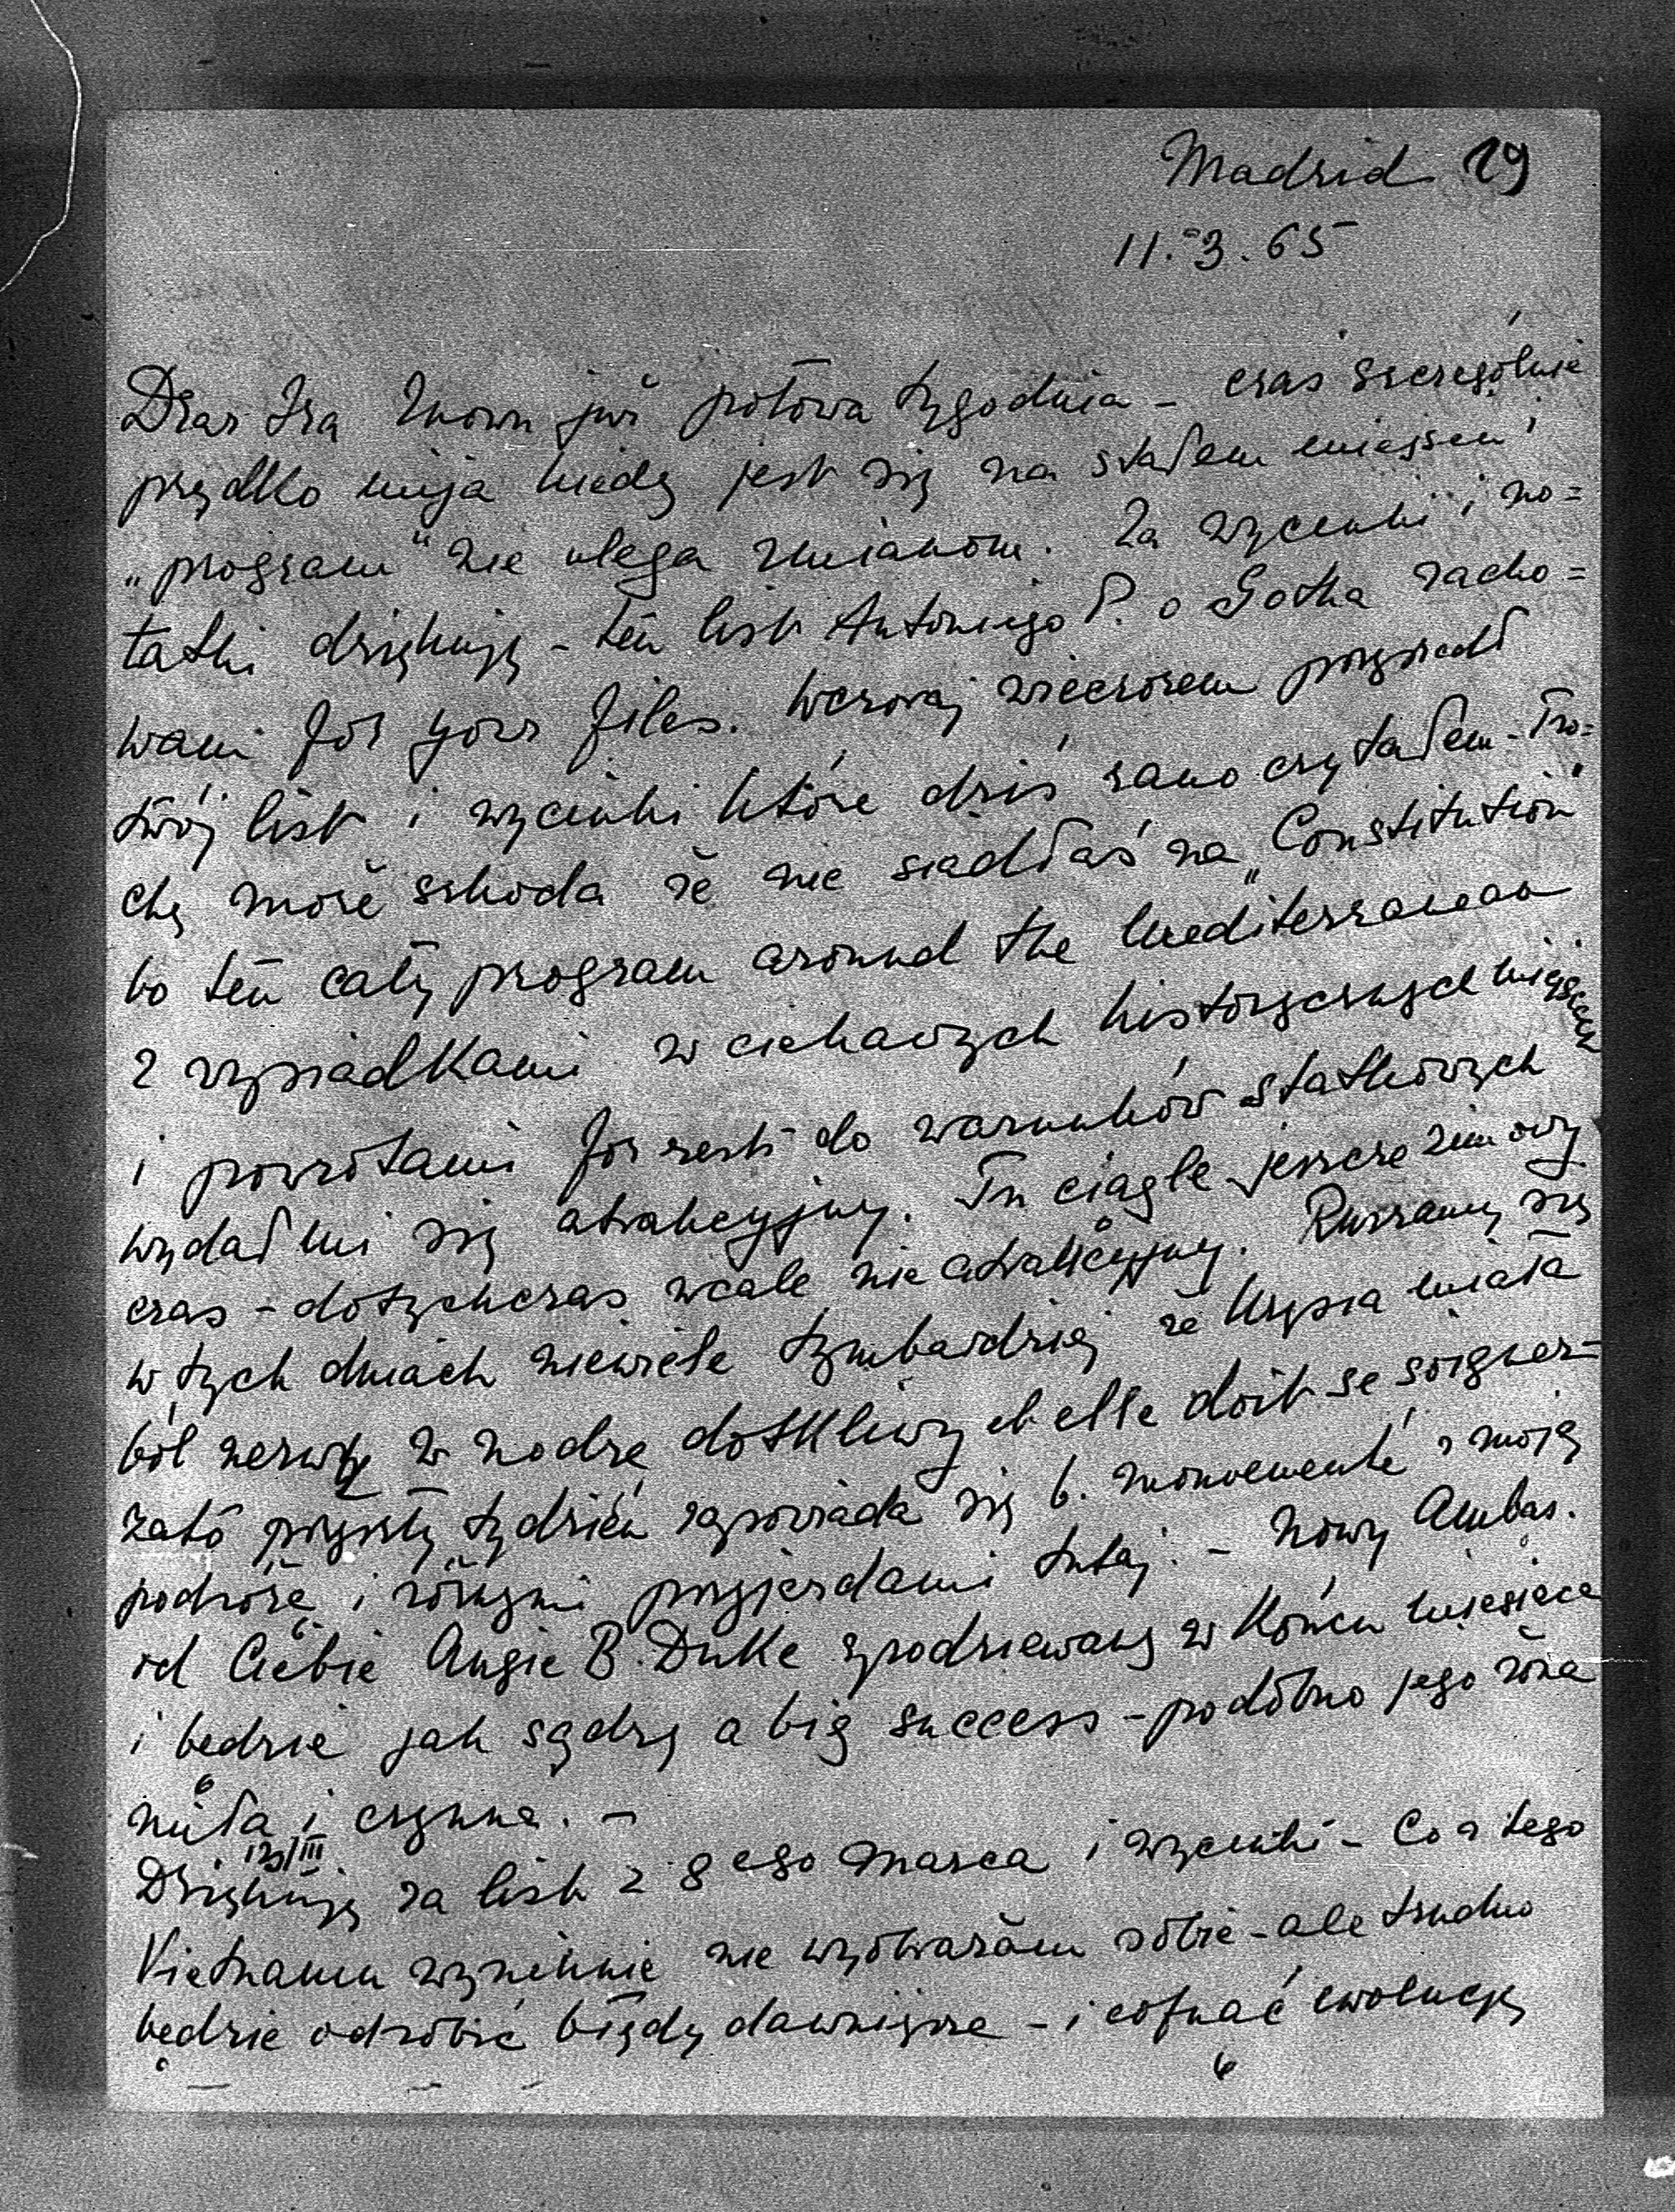 Madrid 19
11.3.65
Dear Ira Znowu już połowa tygodnia - czas szczególnie
prędko mija kiedy jest się na stałem miejscu i
„program" nie ulega zmianom. Za wycinki i no=
tatki dziękuję - ten list Antoniego P. o Gotha zacho=
wam for your files. Wczoraj wieczorem przyszedł
twój list i wycinki które dziś rano czytałem - Tro=
chę może szkoda że nie siadłaś na „Constitution"
bo ten cały program around the Mediterranean
z wysiadkami w ciekawych historycznych miejscach
i powrotami for rest do warunków statkowych
wydał mi się atrakcyjny. Tu ciągle jeszcze zimowy
czas - dotychczas wcale nie atrakcyjny. Ruszamy się
w tych dniach niewiele tymbardziej że Krysia miała
ból nerwu w nodze dotkliwy et elle doit se soigner -
zato przyszły tydzień zapowiada się b. mouvementé z moją
podróżą i różnymi przyjazdami tutaj. - Nowy Ambas.
od Ciebie Angie B. Duke spodziewany w końcu miesiąca
i będzie jak sądzę a big success - podobno jego żona
miła i czynna. -
12/III
Dziękuję za list z 8ego marca i wycinki - Co z tego
Vietnamu wyniknie nie wyobrażam sobie - ale trudno
będzie odrobić błędy dawniejsze - i cofnąć ewolucję